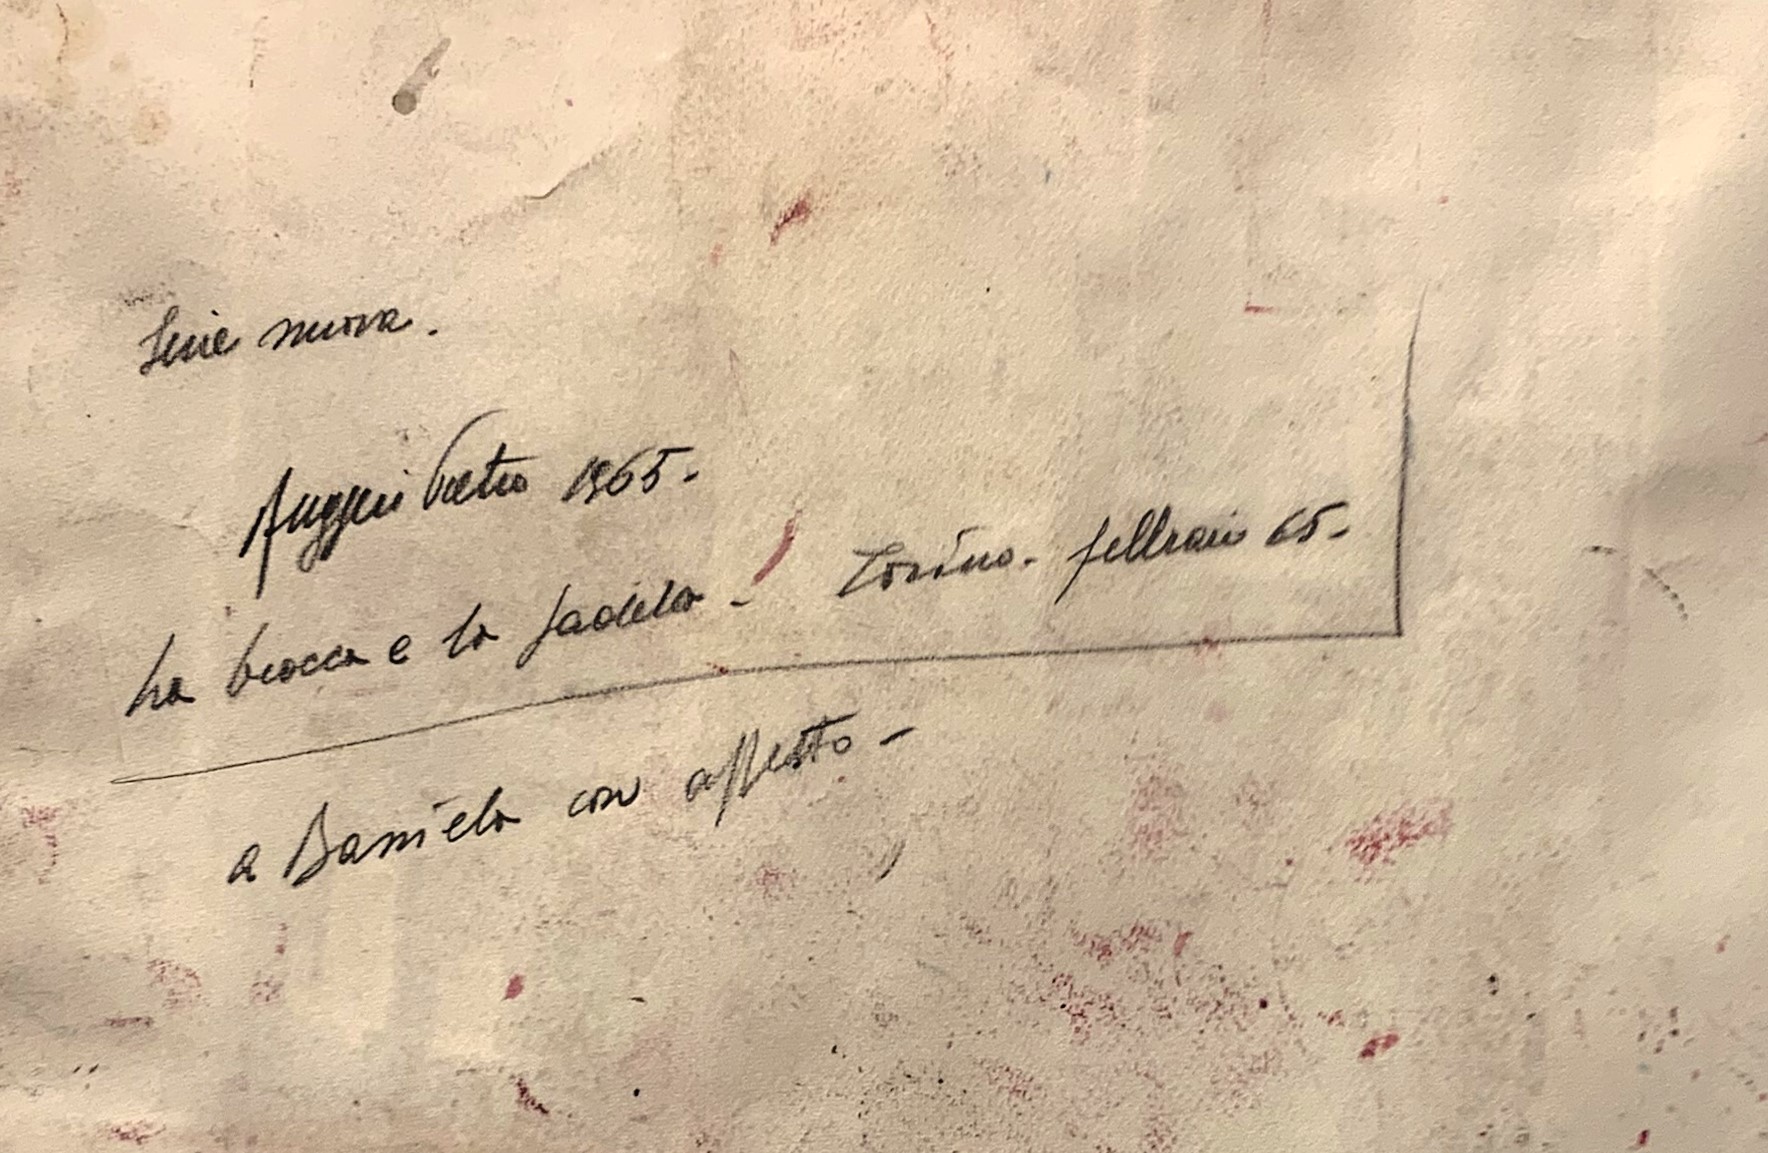 Serie nuova.
Ruggeri Pietro 1965.
La brocca e la padella - Torino - febbraio 65 -
a Daniela con affetto -